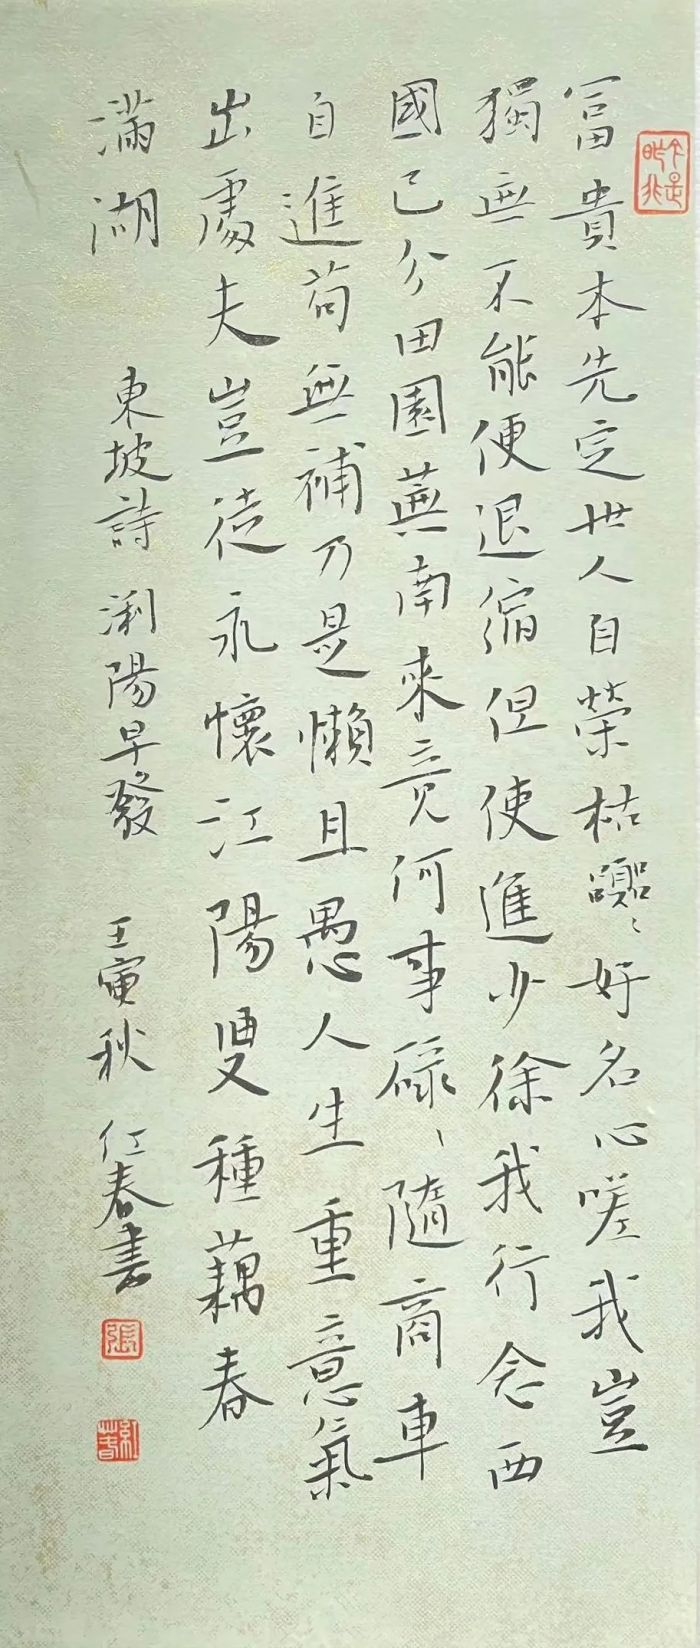 今是昨非
冨貴本先定世人自榮枯囂〻好名心嗟我豈
獨無不能便退縮但使進少徐我行念西
國已分田園蕪南來竟何事碌〻隨商車
自進苟無補乃是懶且愚人生重意氣
出處夫豈徒永懷江陽叟種藕春
滿湖 東坡詩 浰陽早發 壬寅秋 红春書
張
紅春